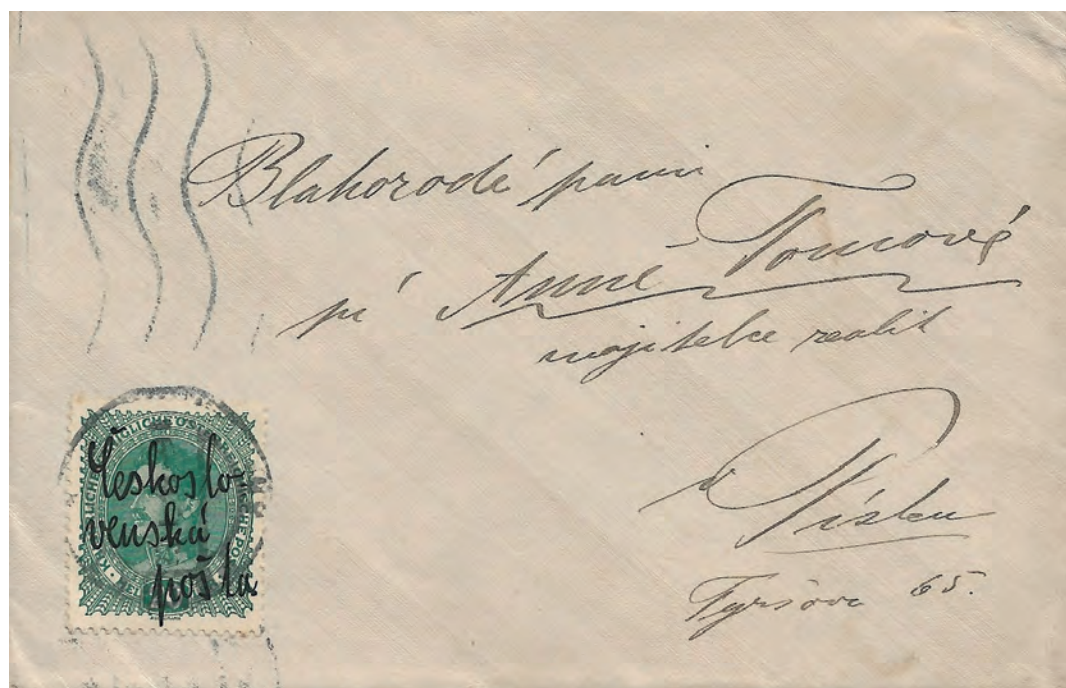 Blahorodé paní
pí Anně Tomcové
majitelce realit
v Písku
Tyršova 65.
Českoslo
venská
pošta